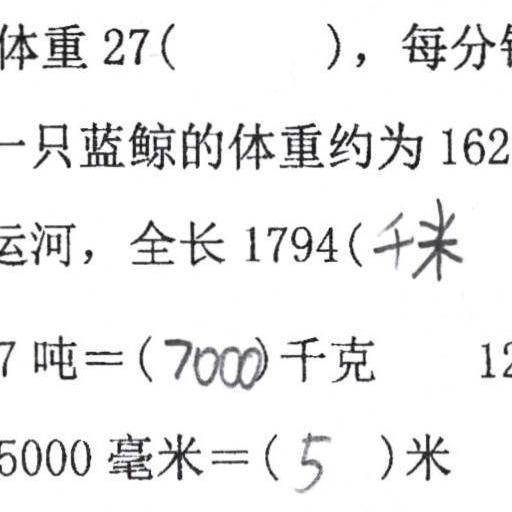 体重 27( ), 每分钟
一只蓝鲸的体重约为 162
运河, 全长 1794(千米
7 吨=(7000)千克 12
5000 毫米=( 5 )米